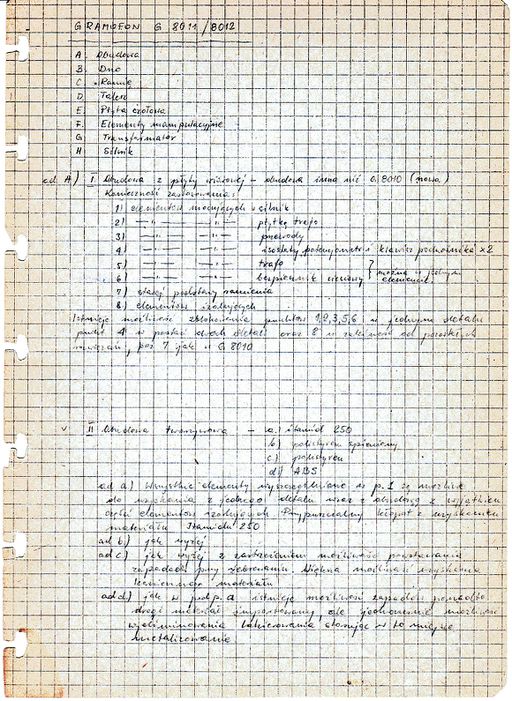 GRAMOFON G 8011/8012
A. Obudowa
B. Dno
C. Ramię
D. Talerz
E. Płyta czołowa
F. Elementy manipulacyjne
G. Transformator
H. Silnik
ad. A) I Obudowa z płyty wiórowej – obudowa inna niż G 8010 (nowa)
Konieczność zastosowania:
1) elementów mocujących silnik
2) —〃— —〃— płytkę trafo
3) —〃— —〃— przewody
4) —〃— —〃— isostaty, potencjometr i klawisz podnośnika x2
5) —〃— —〃— trafo
6) —〃— —〃— bezpiecznik sieciowy } można w jednym elemencie.
7) stałej podstawy ramienia
8) elementów izolujących
Istnieje możliwość zblokowania punktów 1,2,3,5,6 w jednym detalu
punkt 4 w postaci dwóch detali oraz 8 w zależności od
rozwiązań, poz 7 jak w G 8010
II Obudowa tworzywowa – a.) itamid 250
b) polistyren spieniony
c) polistyren
d) ABS
ad a) Wszystkie elementy wyszczególnione w p. 1 są możliwe
do wykonania z jednego detalu wraz z obudową z wyjątkiem
części elementów izolujących. Przypuszczalny kłopot z uzyskaniem
materiału Itamidu 250
ad b) jak wyżej
ad c) jak wyżej z zastrzeżeniem możliwości powstawania
zapadnięć przy żebrowaniu. Większa możliwość uzyskania
tego materiału
ad d) jak w p. a istnieje możliwość zapadnięć ponadto
drogi materiał importowany, ale jednocześnie możliwe
wyeliminowanie lakierowania stosując w to miejsce
metalizowanie